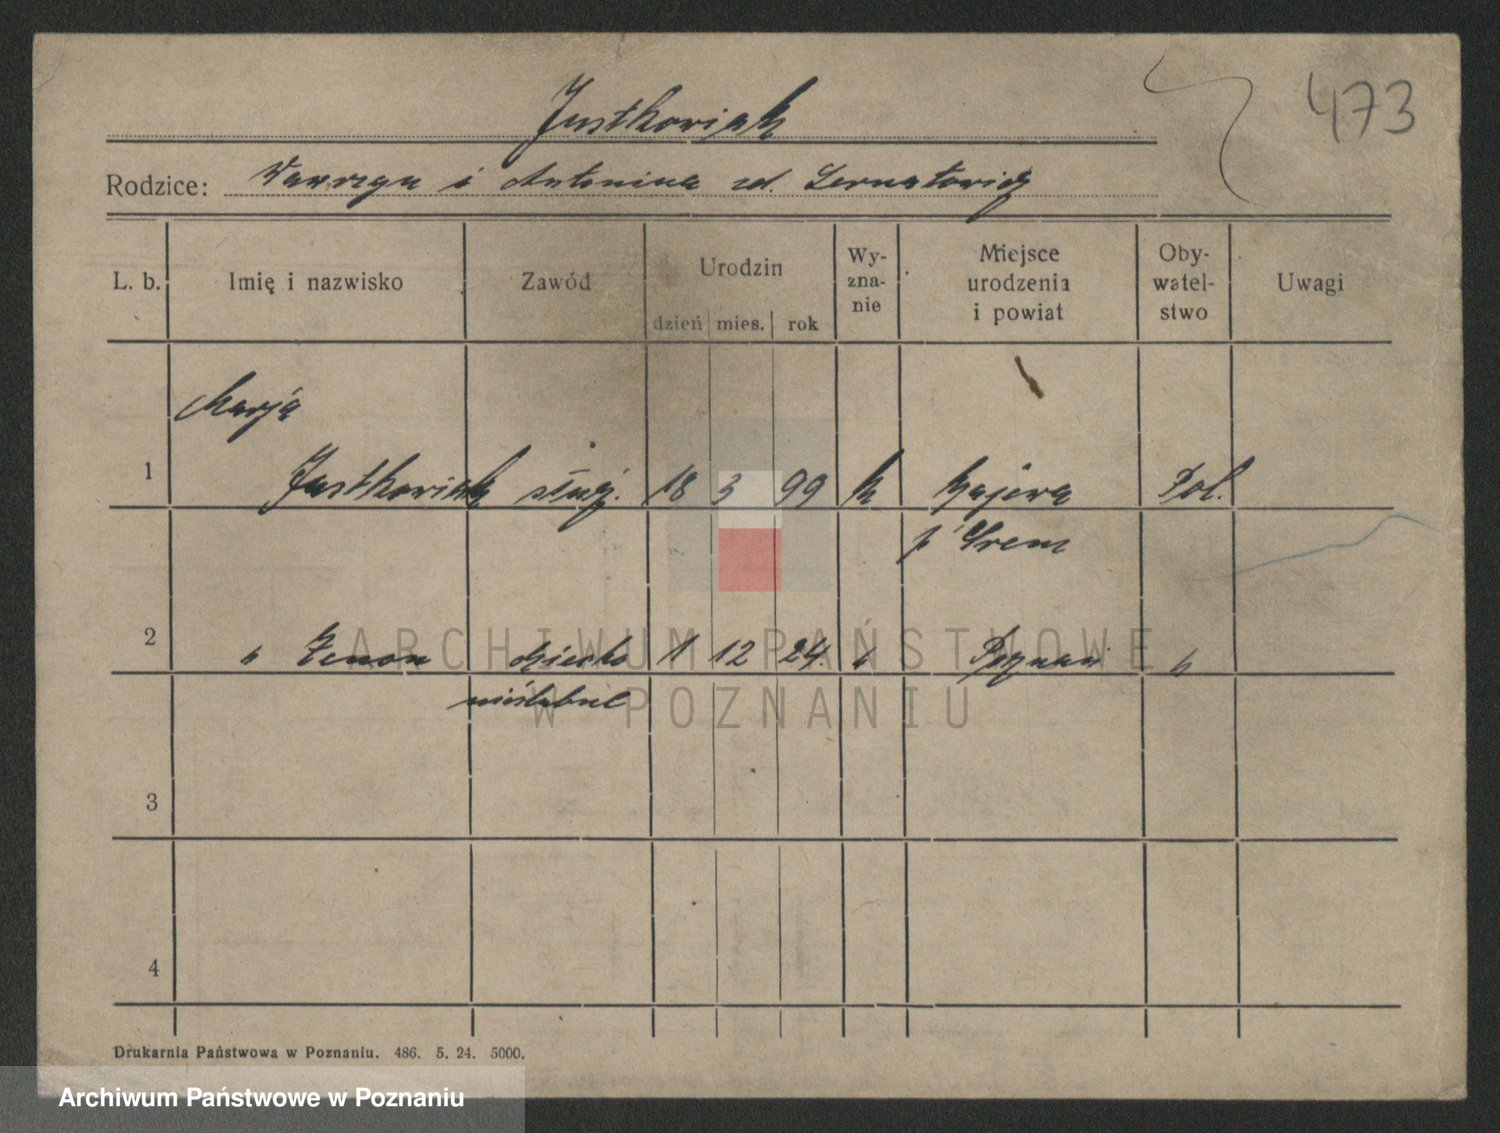 473
Justkowiak
Rodzice: Wawrzyn i Antonina zd. Sernatowicz
L. b. Imię i nazwisko Zawód Urodzin dzień mies. rok Wy-zna-nie Miejsce urodzenia i powiat Oby-watel-stwo Uwagi
Marja
1 Justkowiak służ. 18 3 99 k Pol.
p. Śrem
2 " Zenon dziecko 1 12 24. " Poznań "
nieślubne
3
4
Drukarnia Państwowa w Poznaniu. 486. 5. 24. 5000.
ARCHIWUM PAŃSTWOWE
W POZNANIU
Archiwum Państwowe w Poznaniu